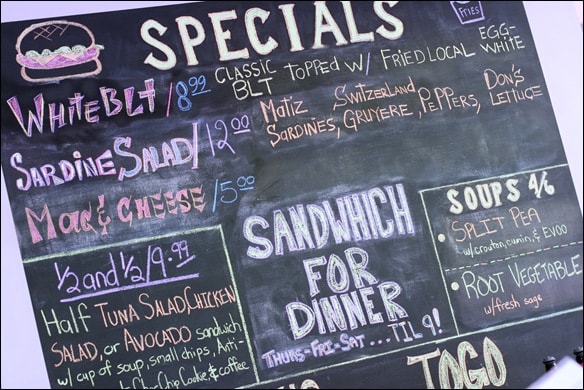 SPECIALS
FRIES
WHITE BLT / 8.00 CLASSIC BLT TOPPED W/ FRIED LOCAL EGG-WHITE
SARDINE SALAD / 12.00 MATIZ SARDINES, SWITZERLAND GRUYERE, PEPPERS, DON'S LETTUCE
MAC & CHEESE / 5.00
1/2 and 1/2 / 9.99
Half TUNA SALAD, CHICKEN
SALAD, or AVOCADO sandwich
w/ cup of soup, small chips, Anti-
Choc Chip Cookie, & coffee
SANDWHICH
FOR
DINNER
THURS-FRI-SAT...TIL 9!
SOUPS 4/6
SPLIT PEA
w/ crouton, cumin, & EVOO
ROOT VEGETABLE
w/ fresh sage
TOGO